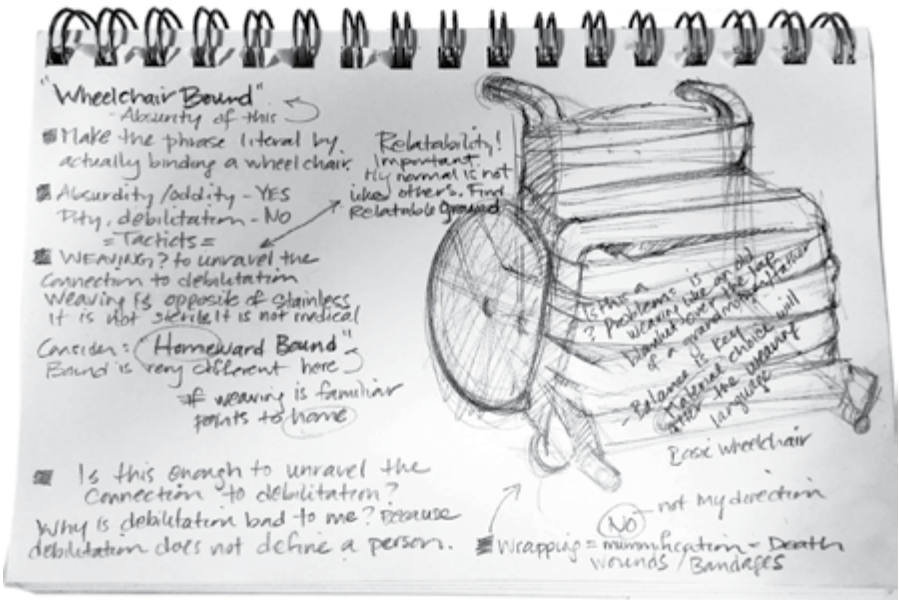 "Wheelchair Bound"
Absurdity of this
Make the phrase literal by
actually binding a wheelchair.
Absurdity/oddity - YES
Pity, debilitation - NO
= Tacticts =
WEAVING? to unravel the
connection to debilitation
Weaving is opposite of stainless
It is not sterile It is not medical
Consider: "Homeward Bound"
Bound is very different here
If weaving is familiar
points to home
Is this enough to unravel the
connection to debilitation?
Why is debilitation bad to me? Because
debilitation does not define a person.
Relatability!
Important
My normal is not
like others. Find
Relatable Ground
Is this a
? Problem: is
weaving like an old
blanket over the lap
of a grandmother/father
- Balance is key
Material choice will
alter the weaving
language
Basic wheelchair
NO - not my direction
Wrapping = mummification - Death
wounds / Bandages